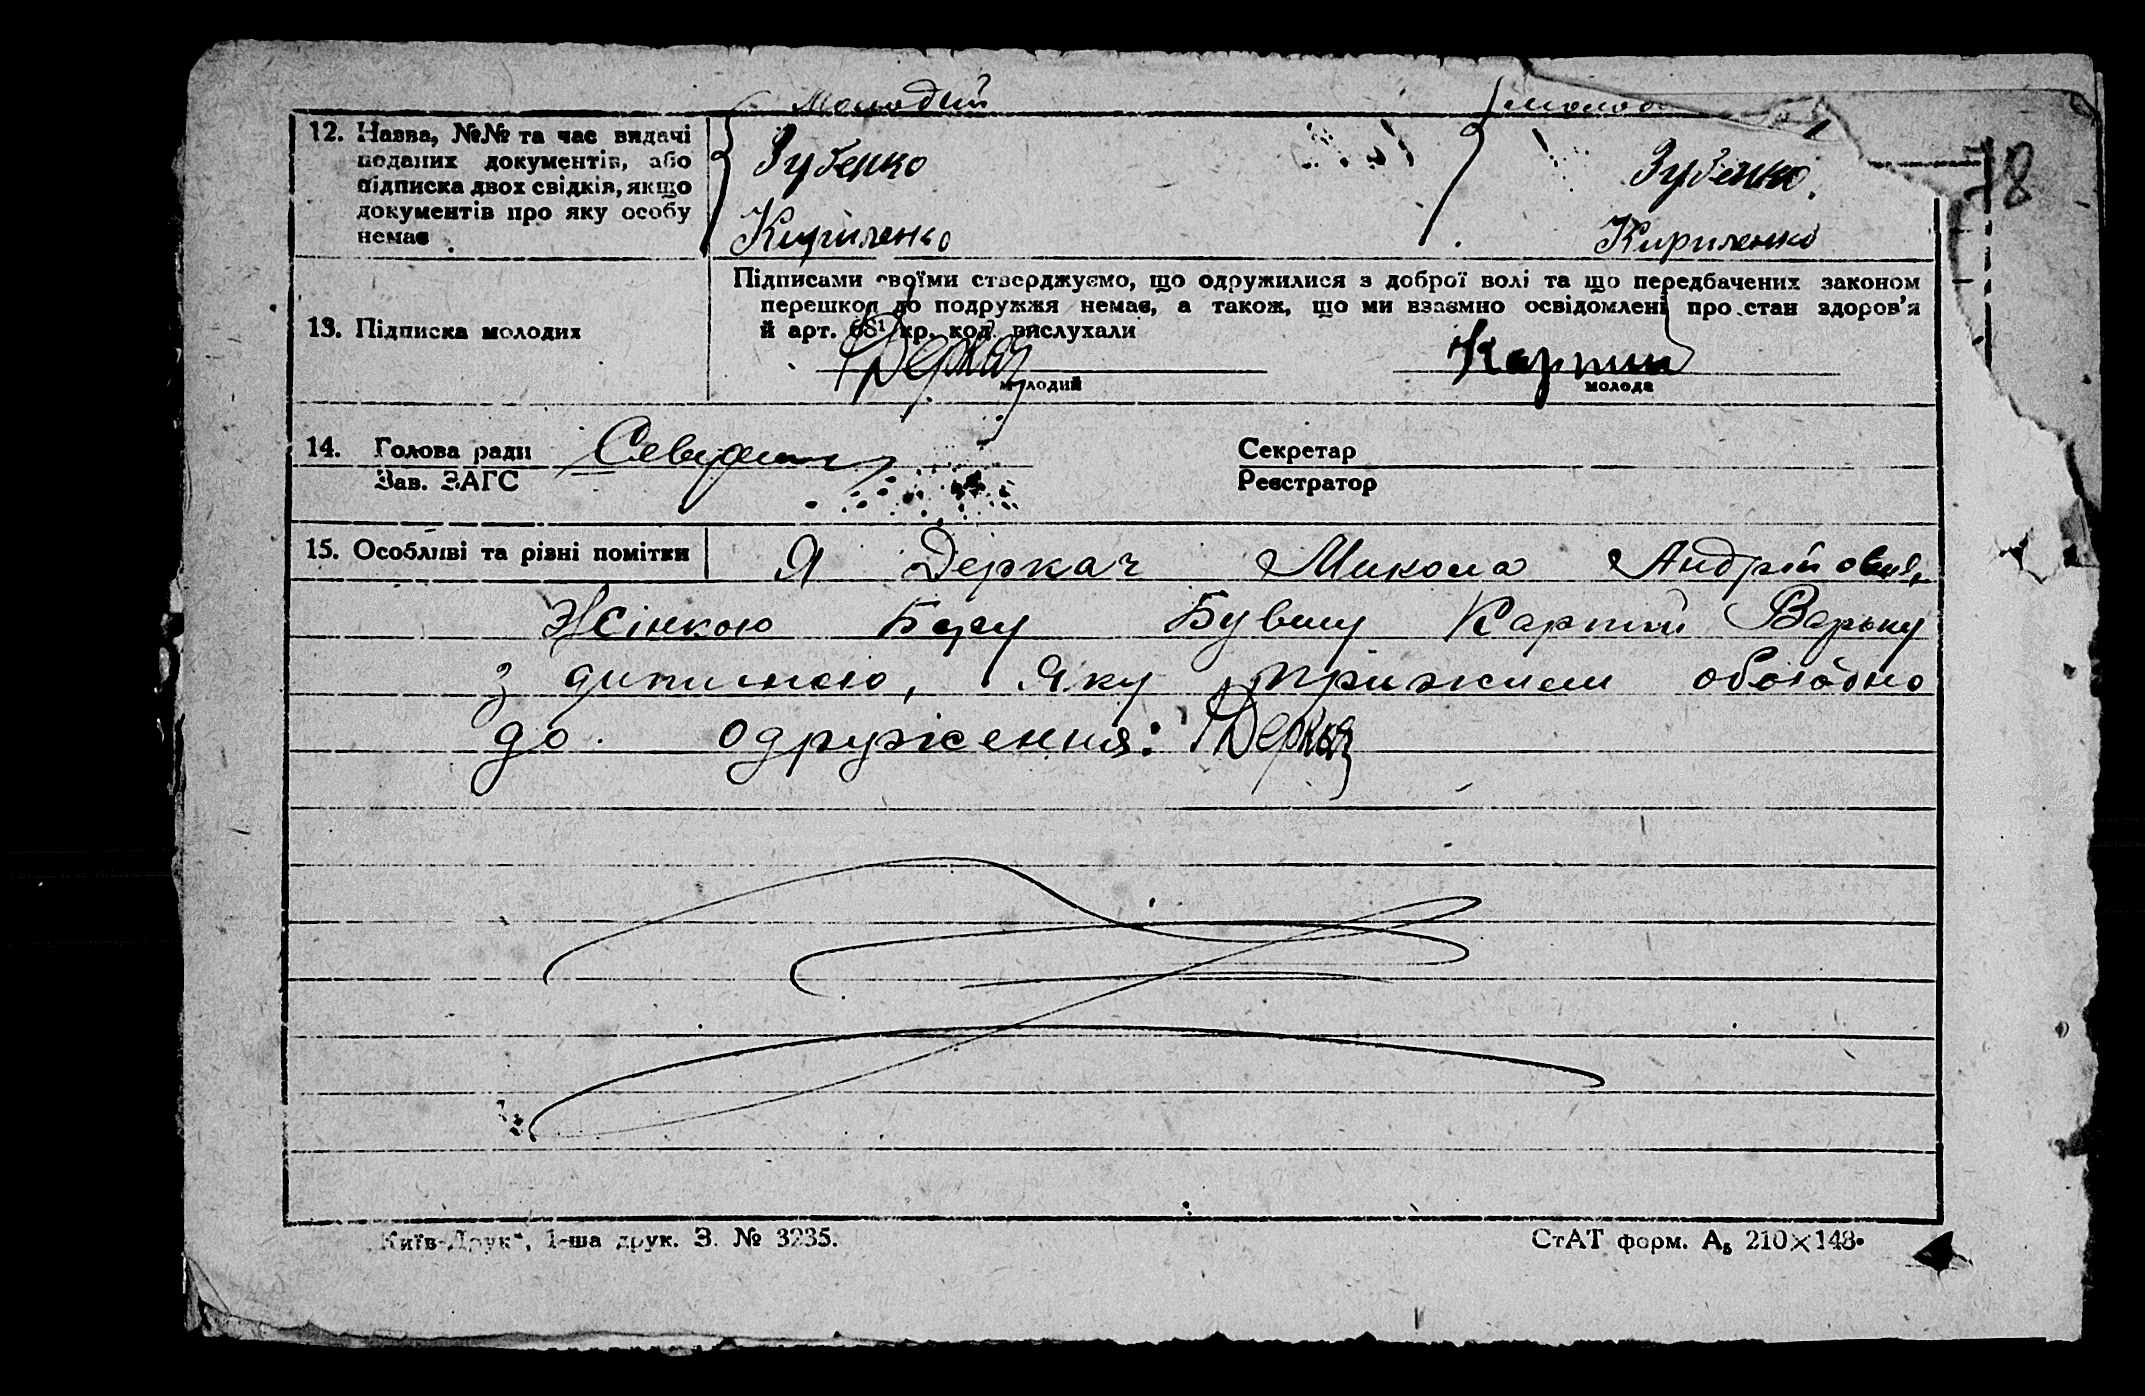 Молодий молод
78
12. Назва, №№ та час видачі
поданих документів, або
підписка двох свідків, якщо
документів про яку особу
немає
Зубенко Зубенко
Кириленко Кириленко
13. Підписка молодих
Підписами своїми стверджуємо, що одружилися з доброї волі та що передбачених законом
перешкод до подружжя немає, а також, що ми взаємно освідомлені про стан здоров'я
й арт. 68¹ кр. код. вислухали
Деркач Карпии
молодий молода
14. Голова ради Секретар
Зав. ЗАГС Реєстратор
15. Особливі та різні помітки Я Деркач Микола Андрійович,
Жінкою Беру Бувшу Карпии Варьку
з дитиною, яку прижили обоюдно
до одруження: Деркач
„Київ-Друк", 1-ша друк. З. № 3235. СтАТ форм. А₅ 210×148.